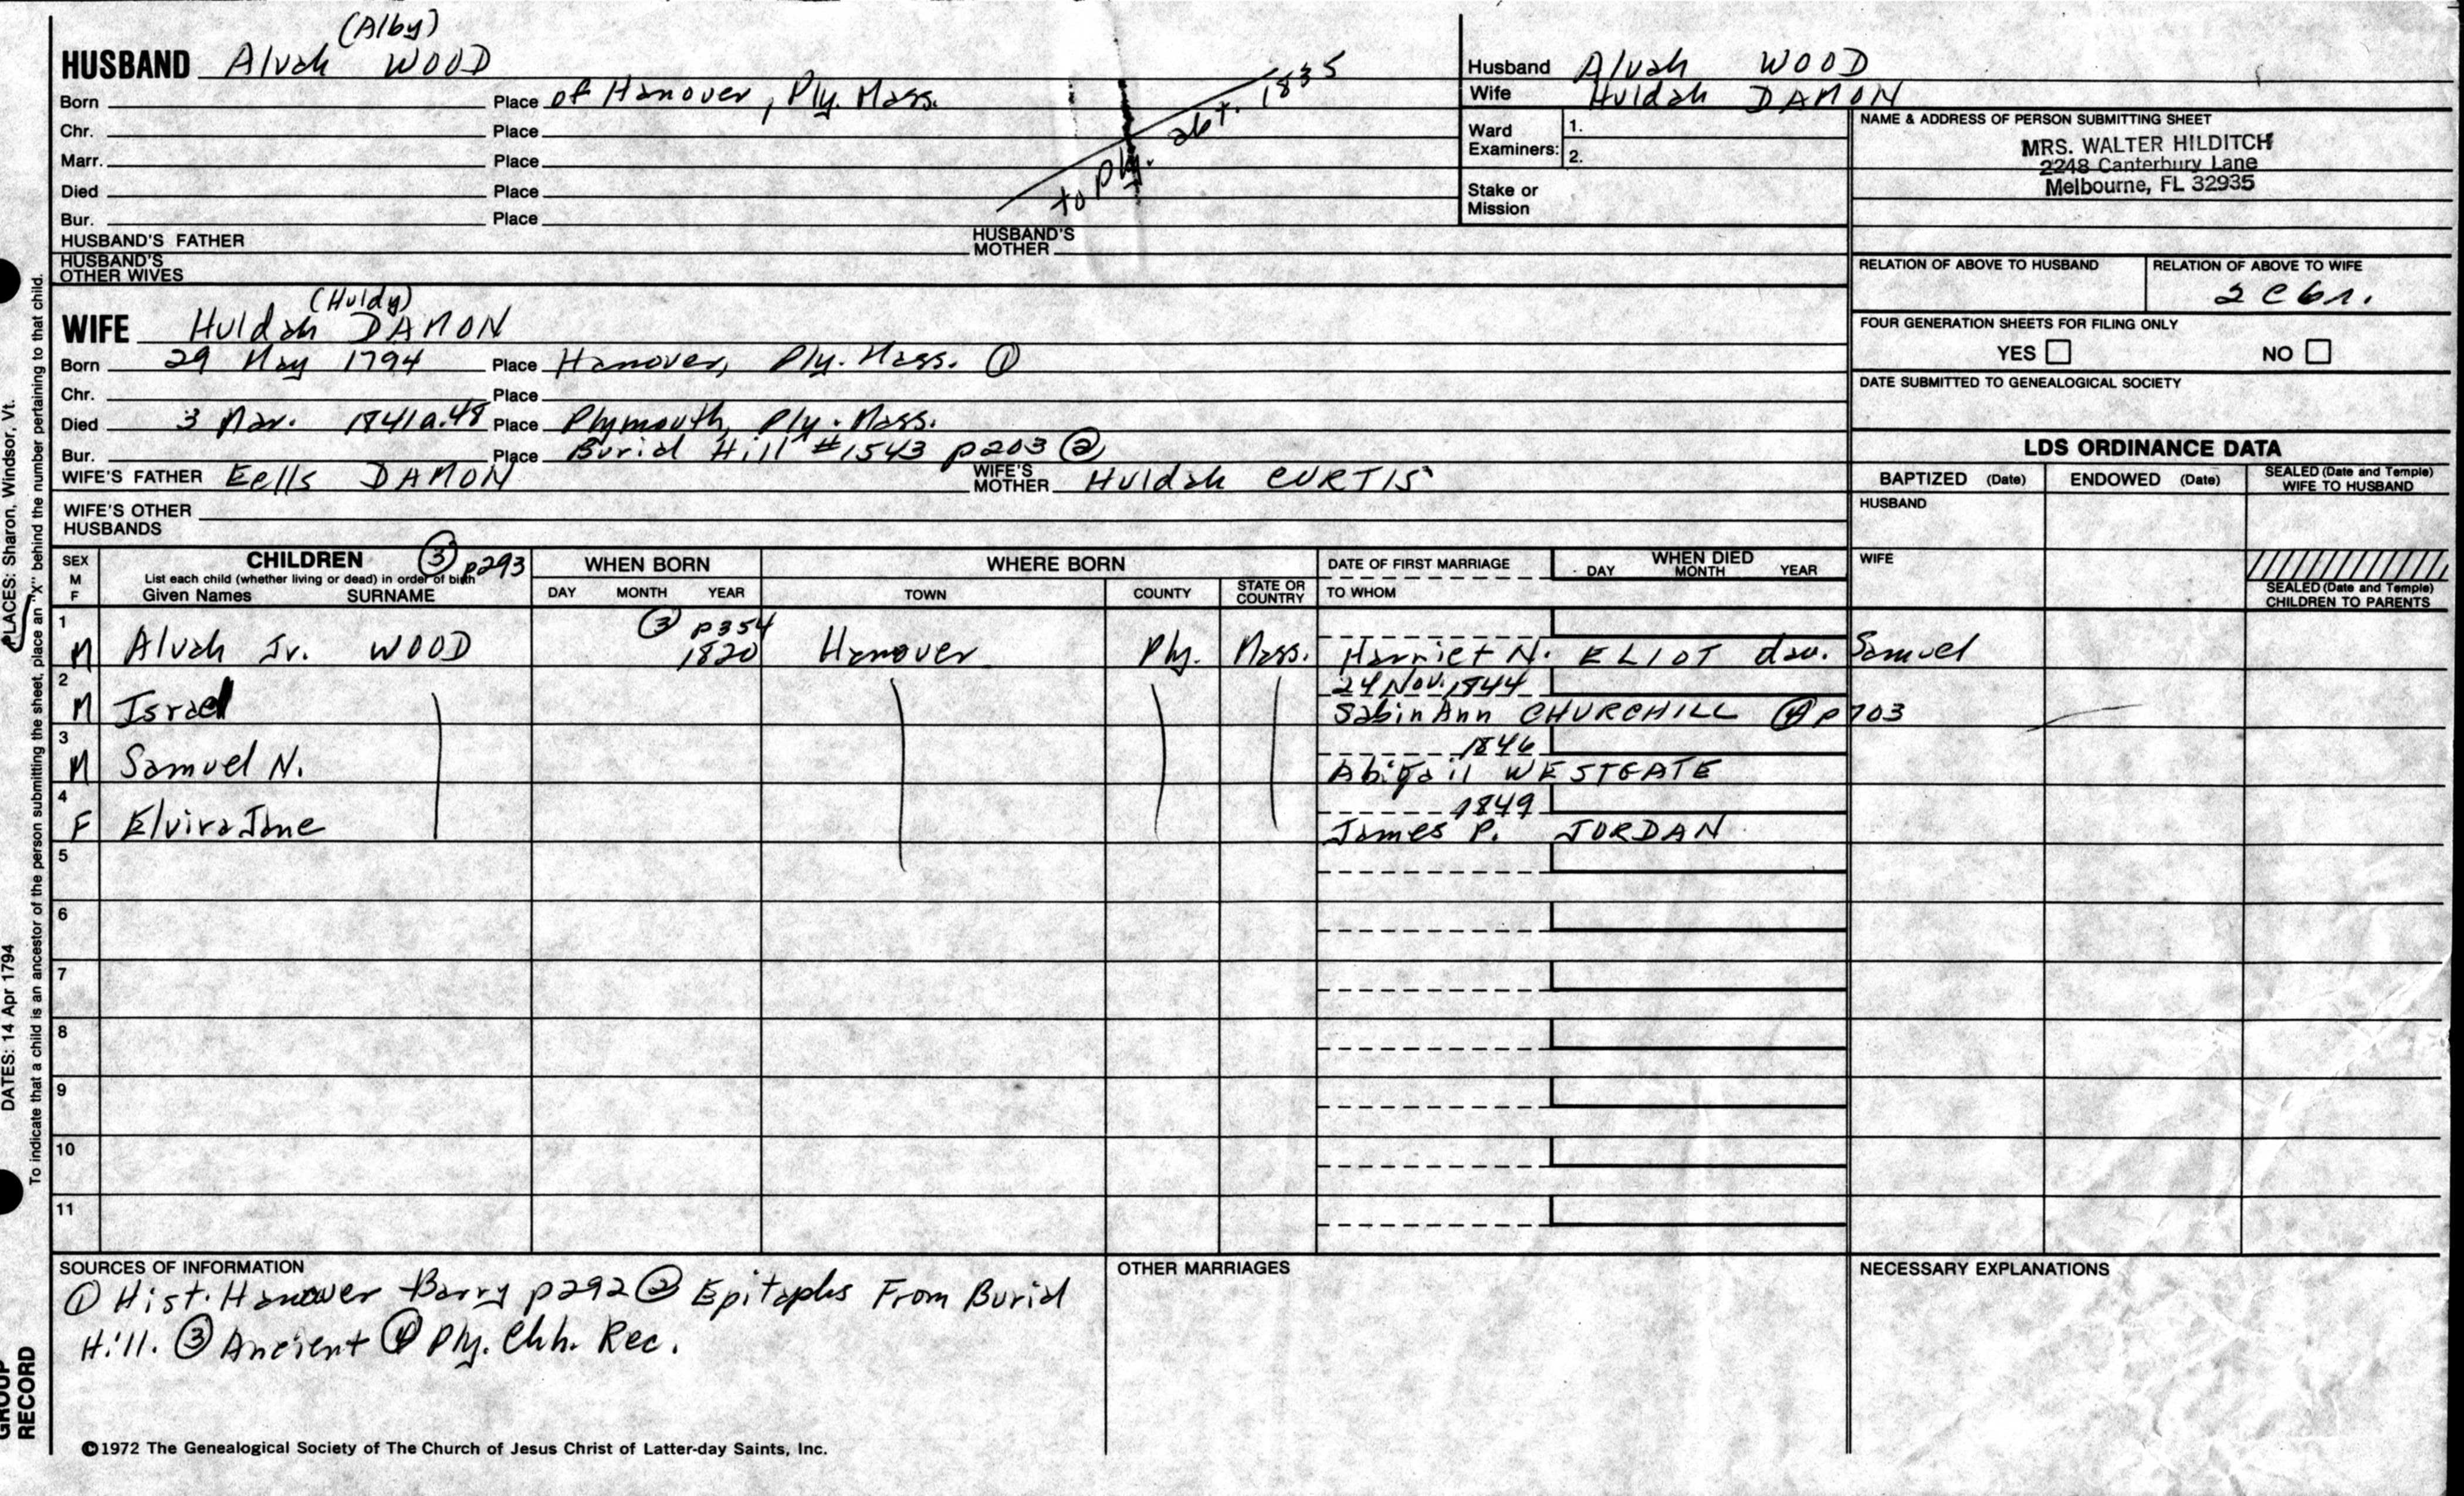 (Alby)
HUSBAND Alvah WOOD
Born Place of Hanover, Ply. Mass.
Chr. Place
Marr. Place
Died Place
Bur. Place
to Ply. aft. 1835
HUSBAND'S FATHER HUSBAND'S MOTHER
HUSBAND'S OTHER WIVES
(Huldy)
WIFE Huldah DAMON
Born 29 May 1794 Place Hanover, Ply. Mass. ①
Chr. Place
Died 3 Mar. 1841 a.48 Place Plymouth, Ply. Mass.
Bur. Place Burial Hill #1543 p203 ②
WIFE'S FATHER Eells DAMON WIFE'S MOTHER Huldah CURTIS
WIFE'S OTHER HUSBANDS
Husband Alvah WOOD
Wife Huldah DAMON
Ward Examiners: 1.
2.
Stake or Mission
NAME & ADDRESS OF PERSON SUBMITTING SHEET
MRS. WALTER HILDITCH
2248 Canterbury Lane
Melbourne, FL 32935
RELATION OF ABOVE TO HUSBAND RELATION OF ABOVE TO WIFE
2 c 6 r.
FOUR GENERATION SHEETS FOR FILING ONLY
YES NO
DATE SUBMITTED TO GENEALOGICAL SOCIETY
LDS ORDINANCE DATA
BAPTIZED (Date) ENDOWED (Date) SEALED (Date and Temple) WIFE TO HUSBAND
HUSBAND
WIFE
SEALED (Date and Temple) CHILDREN TO PARENTS
SEX M F CHILDREN ③ p293
List each child (whether living or dead) in order of birth
Given Names SURNAME
WHEN BORN DAY MONTH YEAR
WHERE BORN TOWN COUNTY STATE OR COUNTRY
DATE OF FIRST MARRIAGE TO WHOM
WHEN DIED DAY MONTH YEAR
③ p354
1 M Alvah Jr. WOOD 1820 Hanover Ply. Mass. Harriet N. ELIOT dau. Samuel
24 Nov. 1844
2 M Israel Sabin Ann CHURCHILL ④ p703
1846
3 M Samuel N. Abigail WESTGATE
1849
4 F Elvira Jane James P. JORDAN
5
6
7
8
9
10
11
SOURCES OF INFORMATION
① Hist. Hanover Barry p292 ② Epitaphs From Burial
Hill. ③ Ancient ④ Ply. Chh. Rec.
OTHER MARRIAGES
NECESSARY EXPLANATIONS
©1972 The Genealogical Society of The Church of Jesus Christ of Latter-day Saints, Inc.
PLACES: Sharon, Windsor, Vt.
DATES: 14 Apr 1794
To indicate that a child is an ancestor of the person submitting the sheet, place an "X" behind the number pertaining to that child.
GROUP
RECORD